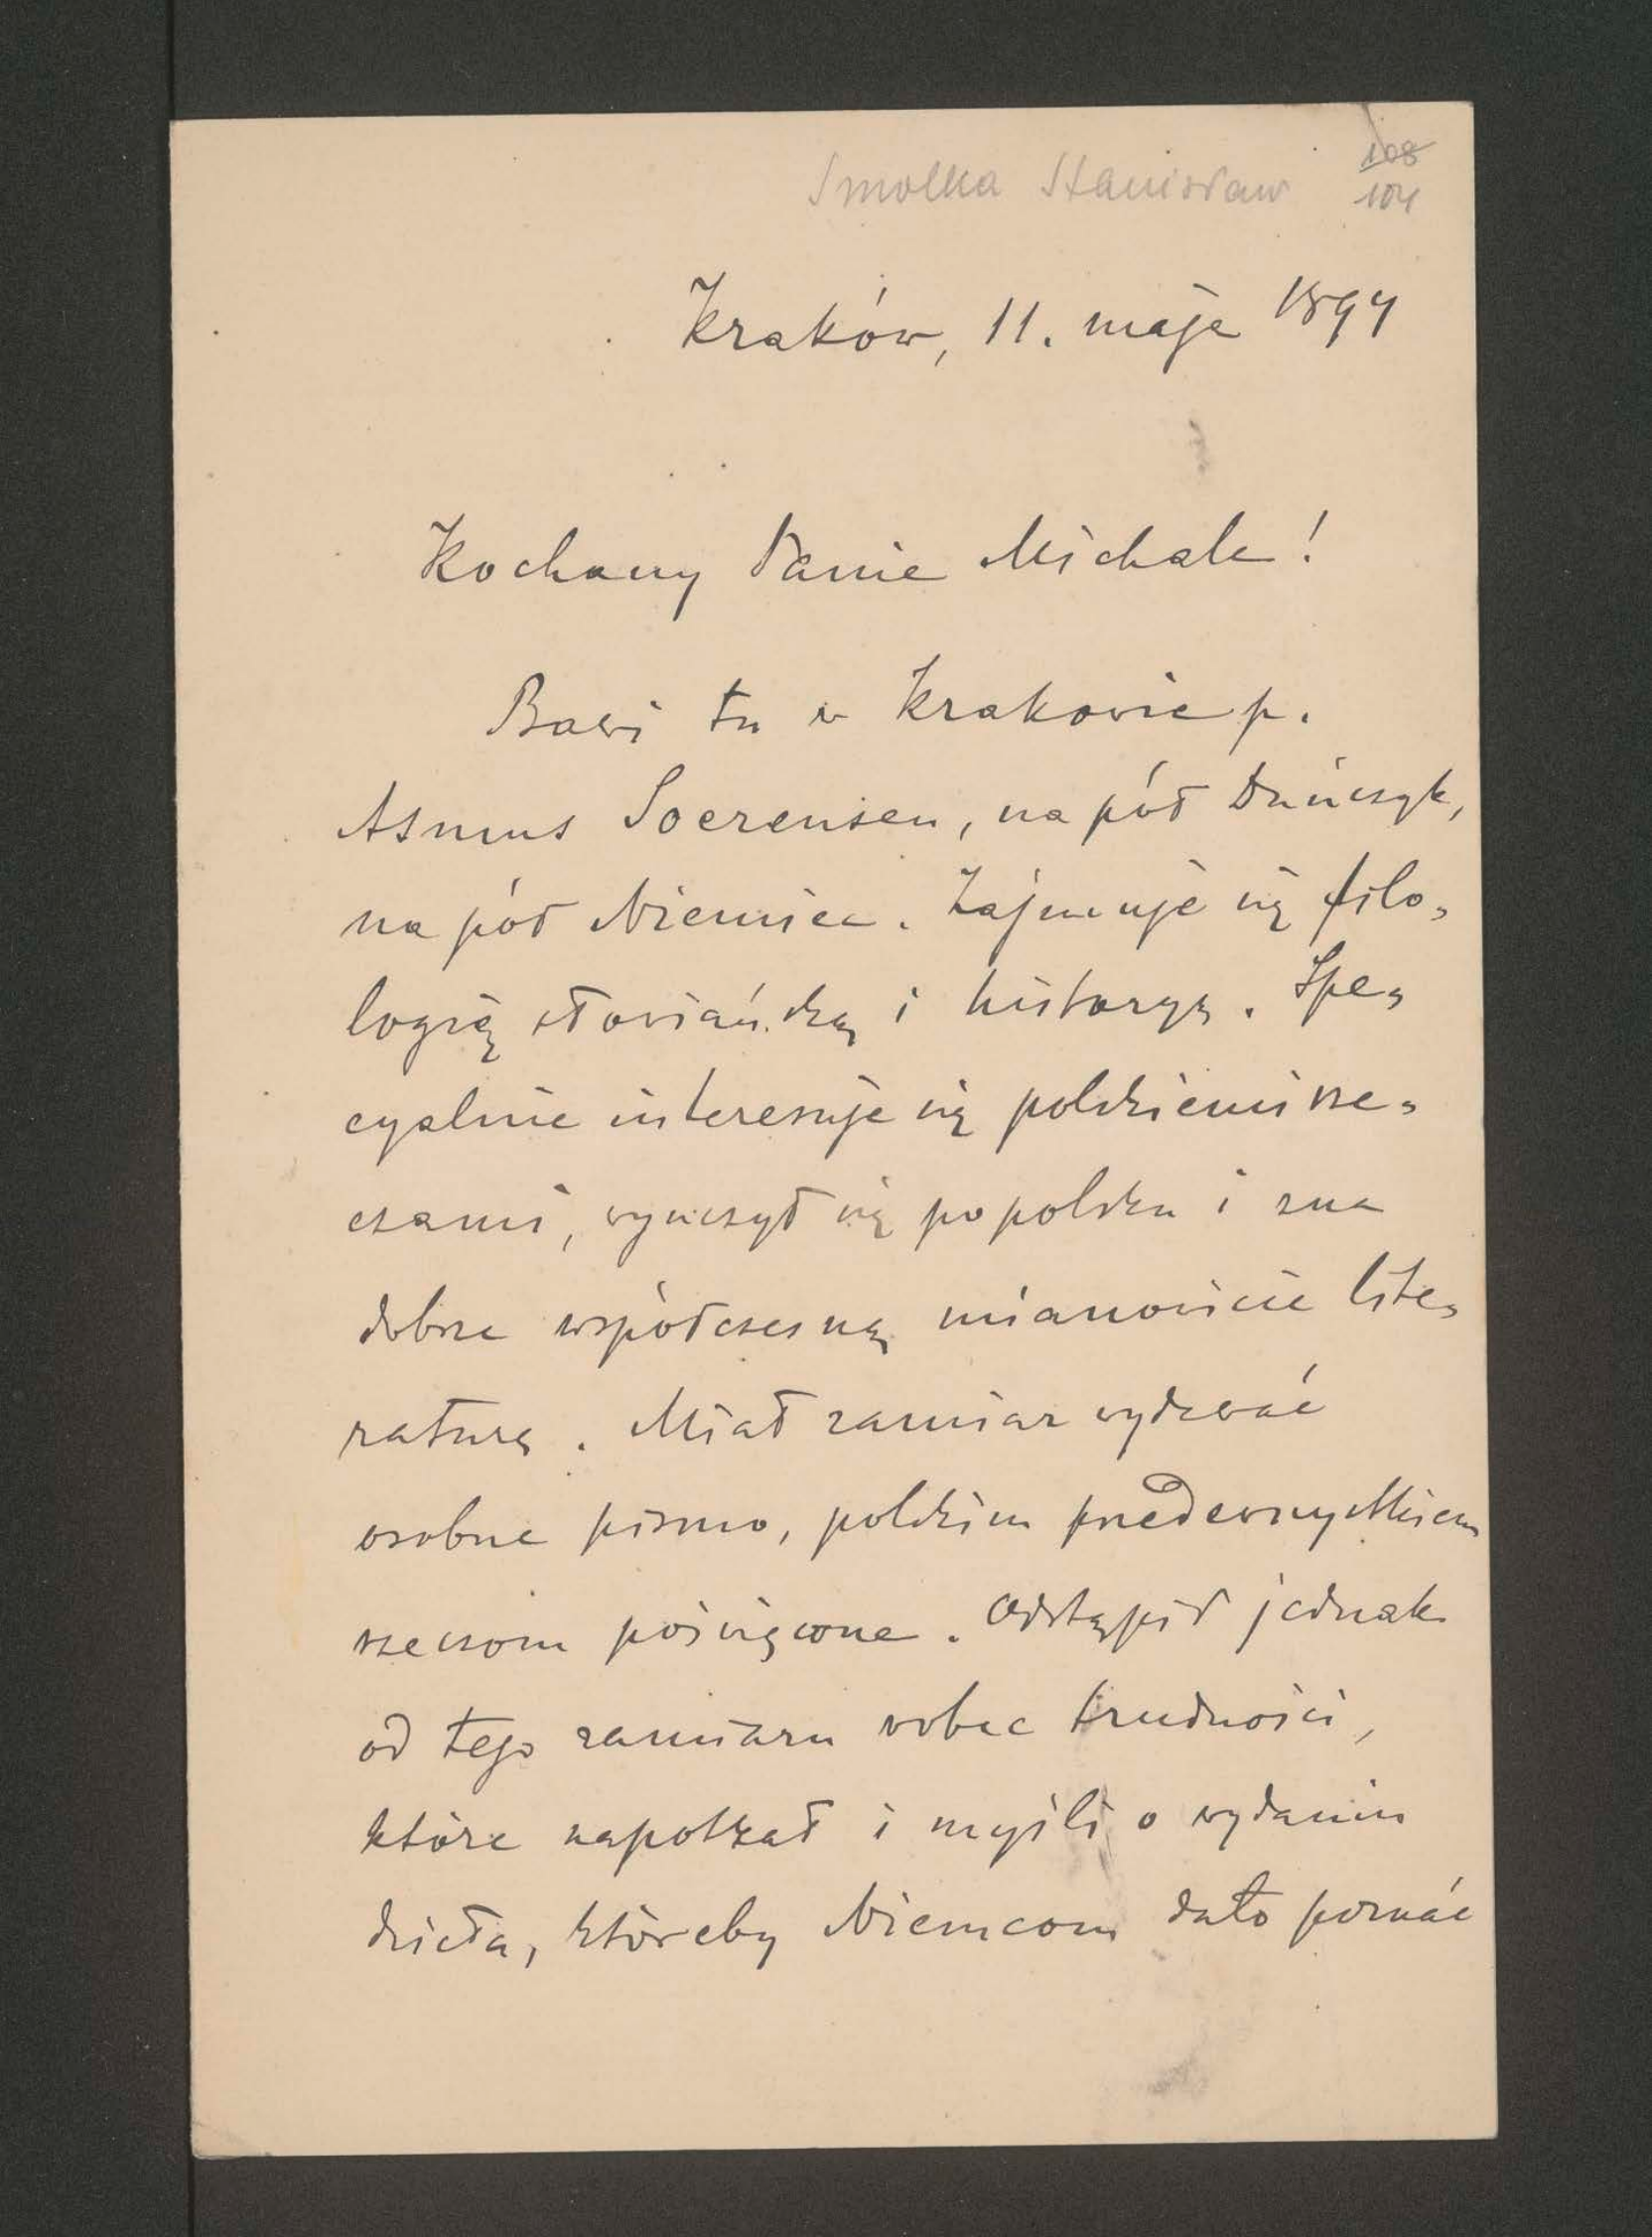 Smolka Stanisław 108
104
Kraków, 11. maja 1894
Kochany Panie Michale!
Bawi tu w Krakowie p.
Asmus Soerensen, na pół Duńczyk,
na pół Niemiec. Zajmuje się filo-
logią słowiańską i historyą. Spe-
cyalnie interesuje się polskiemi rze-
czami, wyuczył się po polsku i zna
dobrze współczesną mianowicie lite-
raturę. Miał zamiar wydawać
osobne pismo, polskim przedewszystkiem
rzeczom poświęcone. Odstąpił jednak
od tego zamiaru wobec trudności,
które napotkał i myśli o wydaniu
dzieła, któreby Niemcom dało poznać